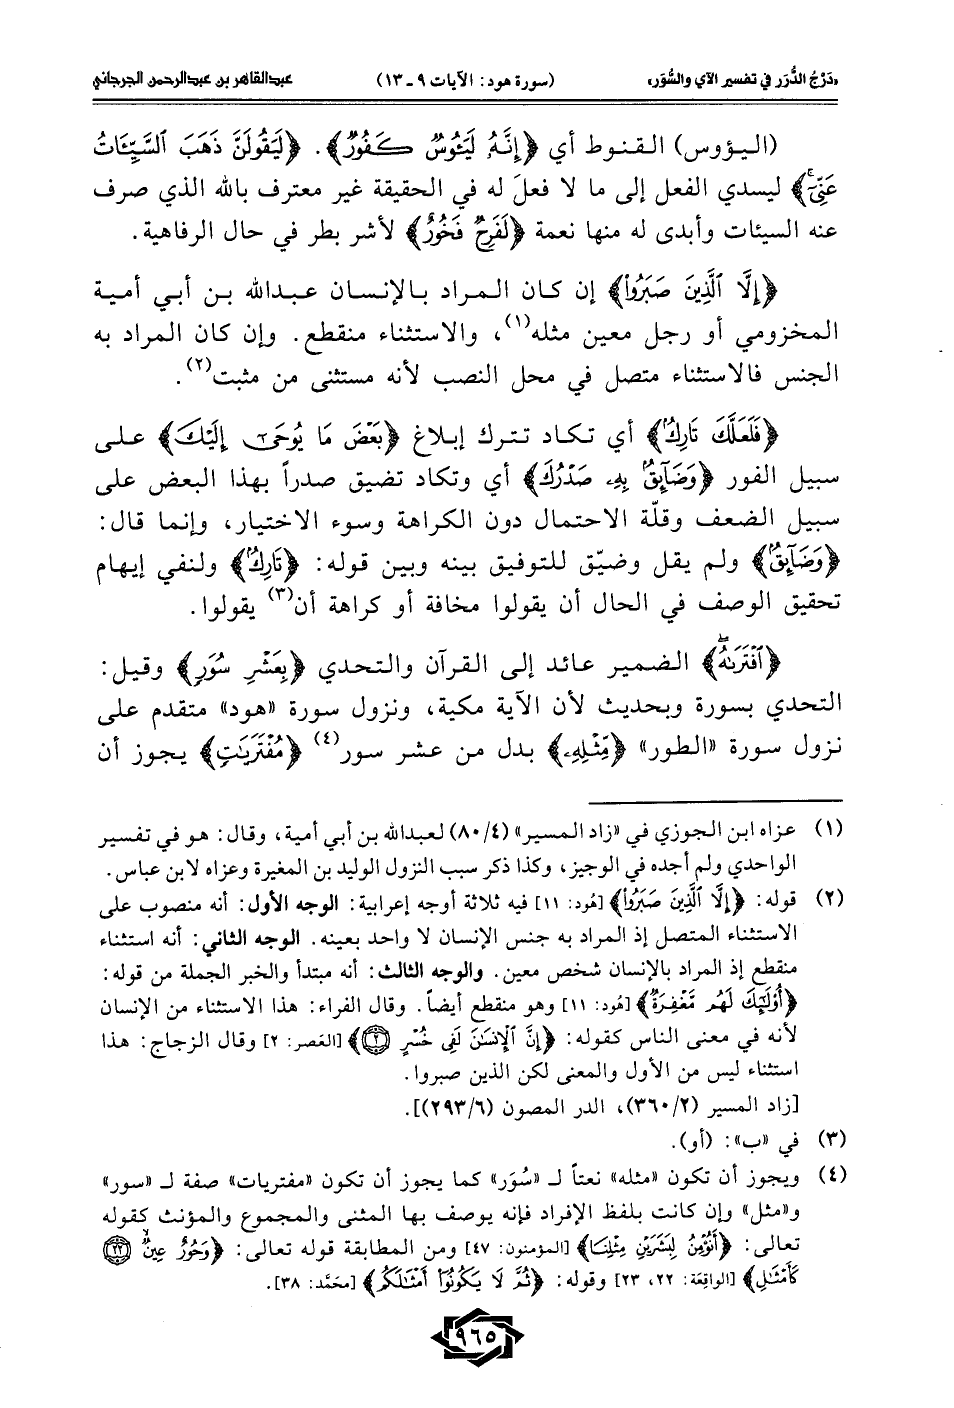 «دَرْجُ الدُّرَر في تفسير الآي والسُّوَر» (سورة هود: الآيات ٩ـ١٣) عبدالقاهر بن عبدالرحمن الجرجاني
(اليؤوس) القنوط أي ﴿إِنَّهُۥ لَيَـُٔوسٌ كَفُورٌ﴾. ﴿لَيَقُولَنَّ ذَهَبَ ٱلسَّيِّـَٔاتُ
عَنِّيٓۚ﴾ ليسدي الفعل إلى ما لا فعلَ له في الحقيقة غير معترف بالله الذي صرف
عنه السيئات وأبدى له منها نعمة ﴿لَفَرِحٌ فَخُورٌ﴾ لأشر بطر في حال الرفاهية.
﴿إِلَّا ٱلَّذِينَ صَبَرُوا۟﴾ إن كان المراد بالإنسان عبدالله بن أبي أمية
المخزومي أو رجل معين مثله(١)، والاستثناء منقطع. وإن كان المراد به
الجنس فالاستثناء متصل في محل النصب لأنه مستثنى من مثبت(٢).
﴿فَلَعَلَّكَ تَارِكٌۢ﴾ أي تكاد تترك إبلاغ ﴿بَعْضَ مَا يُوحَىٰٓ إِلَيْكَ﴾ على
سبيل الفور ﴿وَضَآئِقٌۢ بِهِۦ صَدْرُكَ﴾ أي وتكاد تضيق صدراً بهذا البعض على
سبيل الضعف وقلّة الاحتمال دون الكراهة وسوء الاختيار، وإنما قال:
﴿وَضَآئِقٌۢ﴾ ولم يقل وضيّق للتوفيق بينه وبين قوله: ﴿تَارِكٌۢ﴾ ولنفي إيهام
تحقيق الوصف في الحال أن يقولوا مخافة أو كراهة أن(٣) يقولوا.
﴿ٱفْتَرَىٰهُۖ﴾ الضمير عائد إلى القرآن والتحدي ﴿بِعَشْرِ سُوَرٍ﴾ وقيل:
التحدي بسورة وبحديث لأن الآية مكية، ونزول سورة «هود» متقدم على
نزول سورة «الطور» ﴿مِّثْلِهِۦ﴾ بدل من عشر سور(٤) ﴿مُفْتَرَيَٰتٍ﴾ يجوز أن
(١) عزاه ابن الجوزي في «زاد المسير» (٨٠/٤) لعبدالله بن أبي أمية، وقال: هو في تفسير
الواحدي ولم أجده في الوجيز، وكذا ذكر سبب النزول الوليد بن المغيرة وعزاه لابن عباس.
(٢) قوله: ﴿إِلَّا ٱلَّذِينَ صَبَرُوا۟﴾ [هُود: ١١] فيه ثلاثة أوجه إعرابية: الوجه الأول: أنه منصوب على
الاستثناء المتصل إذ المراد به جنس الإنسان لا واحد بعينه. الوجه الثاني: أنه استثناء
منقطع إذ المراد بالإنسان شخص معين. والوجه الثالث: أنه مبتدأ والخبر الجملة من قوله:
﴿أُو۟لَٰٓئِكَ لَهُم مَّغْفِرَةٌ﴾ [هُود: ١١] وهو منقطع أيضاً. وقال الفراء: هذا الاستثناء من الإنسان
لأنه في معنى الناس كقوله: ﴿إِنَّ ٱلْإِنسَٰنَ لَفِى خُسْرٍ ۝٢﴾ [العَصر: ٢] وقال الزجاج: هذا
استثناء ليس من الأول والمعنى لكن الذين صبروا.
[زاد المسير (٣٦٠/٢)، الدر المصون (٢٩٣/٦)].
(٣) في «ب»: (أو).
(٤) ويجوز أن تكون «مثله» نعتاً لـ «سُوَر» كما يجوز أن تكون «مفتريات» صفة لـ «سور»
و«مثل» وإن كانت بلفظ الإفراد فإنه يوصف بها المثنى والمجموع والمؤنث كقوله
تعالى: ﴿أَنُؤْمِنُ لِبَشَرَيْنِ مِثْلِنَا﴾ [المؤمنون: ٤٧] ومن المطابقة قوله تعالى: ﴿وَحُورٌ عِينٌ ۝٢٢
كَأَمْثَٰلِ﴾ [الواقِعَة: ٢٢، ٢٣] وقوله: ﴿ثُمَّ لَا يَكُونُوٓا۟ أَمْثَٰلَكُم﴾ [محَمَّد: ٣٨].
٩٦٥